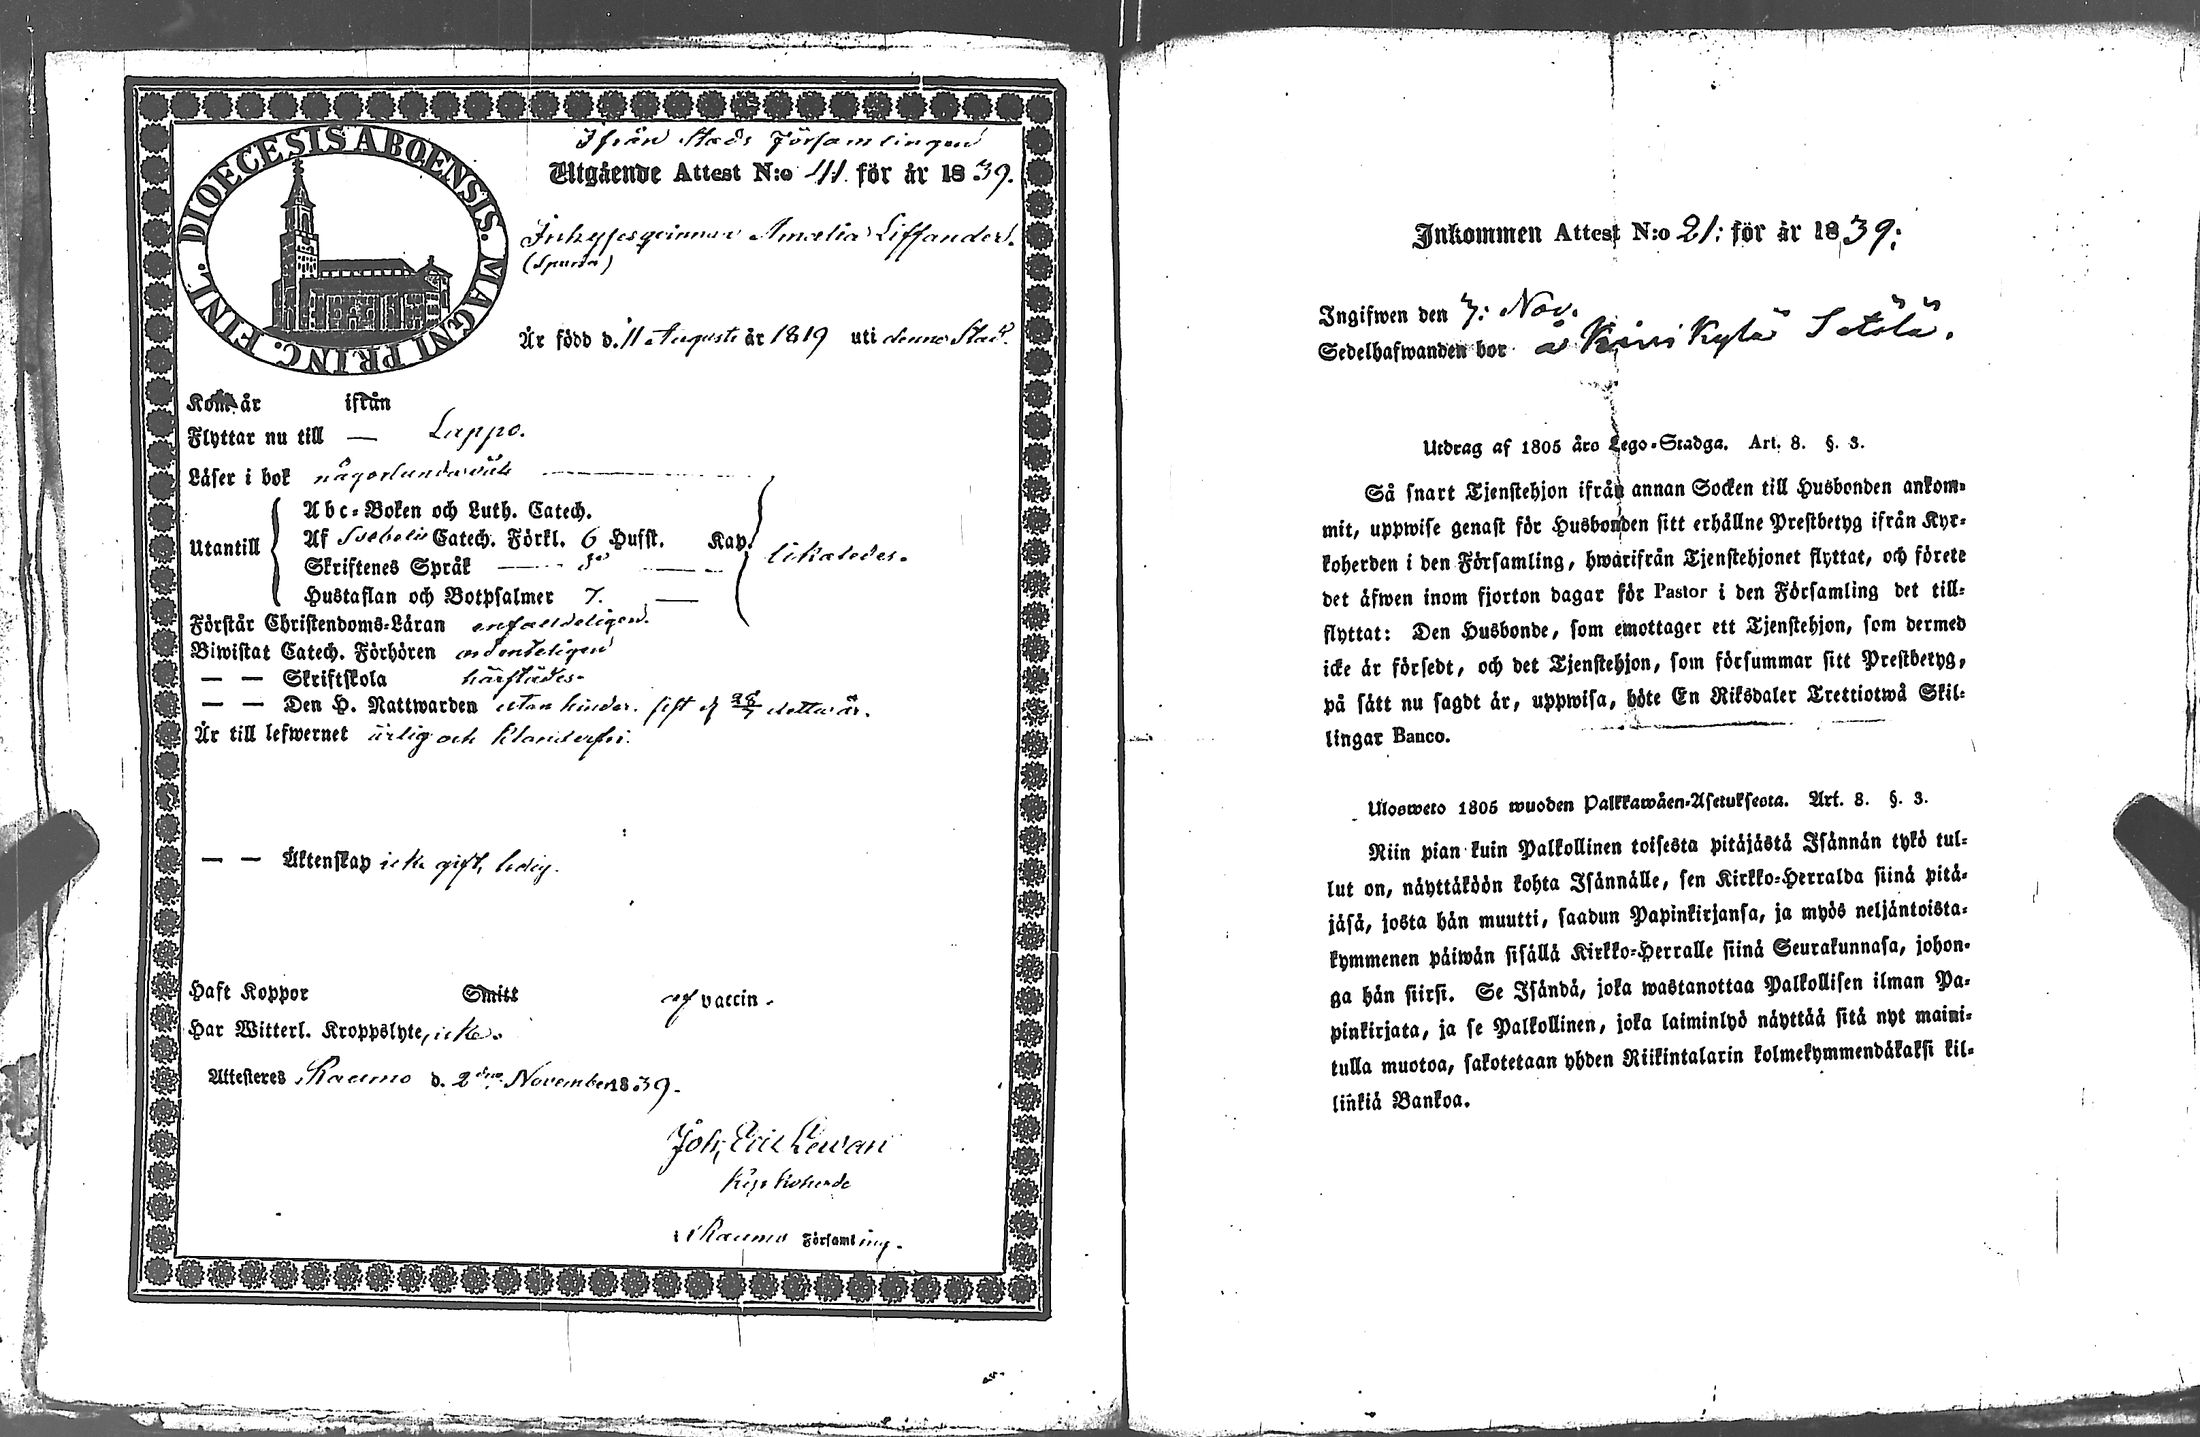 DIOECESIS ABOENSIS. MAGNI PRINC. FINL.
Ifrån Stads Församlingen
Utgående Attest N:o 41. för år 1839.
Inhysesqvinnan Amalia Liffander.
(Spuria)
Är född d. 11 Augusti år 1819 uti denna Stad.
Kom år ifrån
Flyttar nu till — Lappo.
Läser i bok någorlunda
Utantill
Abc-Boken och Luth. Catech.
Af Svebelii Catech. Förkl. 6 Hufst. Kap.
Skriftenes Språk
likaledes.
Hustaflan och Botpsalmer 7. —
Förstår Christendoms-Läran enfaldeligen.
Biwistat Catech. Förhören ordenteligen
— — Skriftskola härstädes.
— — Den H. Nattwarden utan hinder. sist d. 28/7 detta år.
Är till lefwernet ärlig och klanderfri.
— — Äktenskap icke gift, ledig.
Haft Koppor Smitt af vaccin.
Har Witterl. Kroppslyte, icke.
Attesteras Raumo d. 2dra November 1839.
Joh. Eric Lewan
Kyrkoherde
i Raumo Församling.
Inkommen Attest N:o 21: för år 1839:
Ingifwen den 7: Nov.
Sedelhafwanden bor å Kiwikylä Sätölä.
Utdrag af 1805 års Lego-Stadga. Art. 8. §. 3.
Så snart Tjenstehjon ifrån annan Socken till Husbonden ankom-
mit, uppwise genast för Husbonden sitt erhållne Prestbetyg ifrån Kyr-
koherden i den Församling, hwarifrån Tjenstehjonet flyttat, och förete
det äfwen inom fjorton dagar för Pastor i den Församling det till-
flyttat: Den Husbonde, som emottager ett Tjenstehjon, som dermed
icke är försedt, och det Tjenstehjon, som försummar sitt Prestbetyg,
på sätt nu sagdt är, uppwisa, böte En Riksdaler Trettiotwå Skil-
lingar Banco.
Ulosweto 1805 wuoden Palkkawäen-Asetuksesta. Art. 8. §. 3.
Niin pian kuin Palkollinen toisesta pitäjästä Isännän tykö tul-
lut on, näyttäköön kohta Isännälle, sen Kirkko-Herralda siinä pitä-
jäsä, josta hän muutti, saadun Papinkirjansa, ja myös neljäntoista-
kymmenen päiwän sisällä Kirkko-Herralle siinä Seurakunnasa, johon-
ga hän siirsi. Se Isändä, joka wastanottaa Palkollisen ilman Pa-
pinkirjata, ja se Palkollinen, joka laiminlyö näyttää sitä nyt maini-
tulla muotoa, sakotetaan yhden Riikintalarin kolmekymmendäkaksi kil-
linkiä Bankoa.